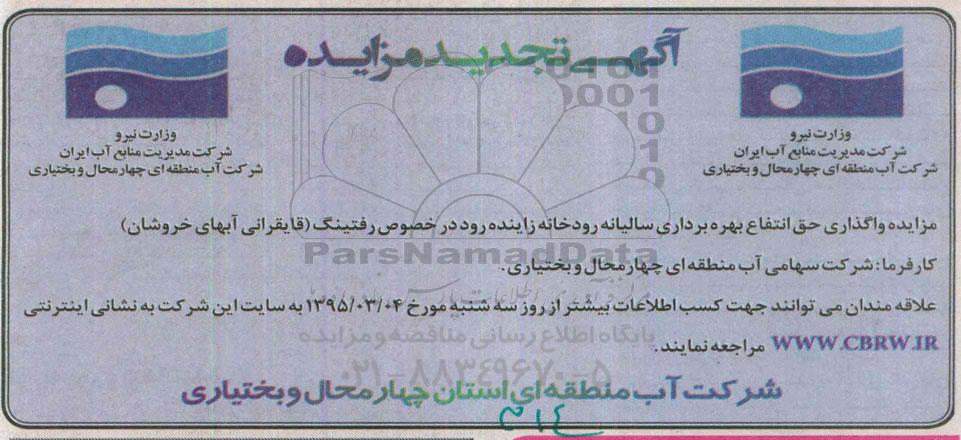 آگهی تجدید مزایده
وزارت نیرو
شرکت مدیریت منابع آب ایران
شرکت آب منطقه ای چهارمحال و بختیاری
وزارت نیرو
شرکت مدیریت منابع آب ایران
شرکت آب منطقه ای چهارمحال و بختیاری
مزایده واگذاری حق انتفاع بهره برداری سالیانه رودخانه زاینده رود در خصوص رفتینگ (قایقرانی آبهای خروشان)
ParsNamadData
کارفرما: شرکت سهامی آب منطقه ای چهارمحال و بختیاری.
علاقه مندان می توانند جهت کسب اطلاعات بیشتر از روز سه شنبه مورخ ۱۳۹۵/۰۳/۰۴ به سایت این شرکت به نشانی اینترنتی
پایگاه اطلاع رسانی مناقصه و مزایده
WWW.CBRW.IR مراجعه نمایند.
۰۲۱-۸۸۳۴۹۶۷۰-۵
شرکت آب منطقه ای استان چهارمحال و بختیاری